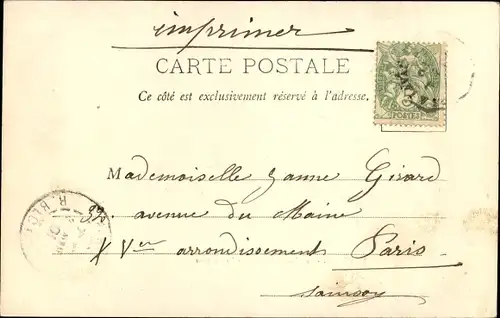 imprimer
CARTE POSTALE
Ce côté est exclusivement réservé à l'adresse.
POSTES
Mademoiselle Janne Girard
avenue du Maine
XVer arrondissement Paris